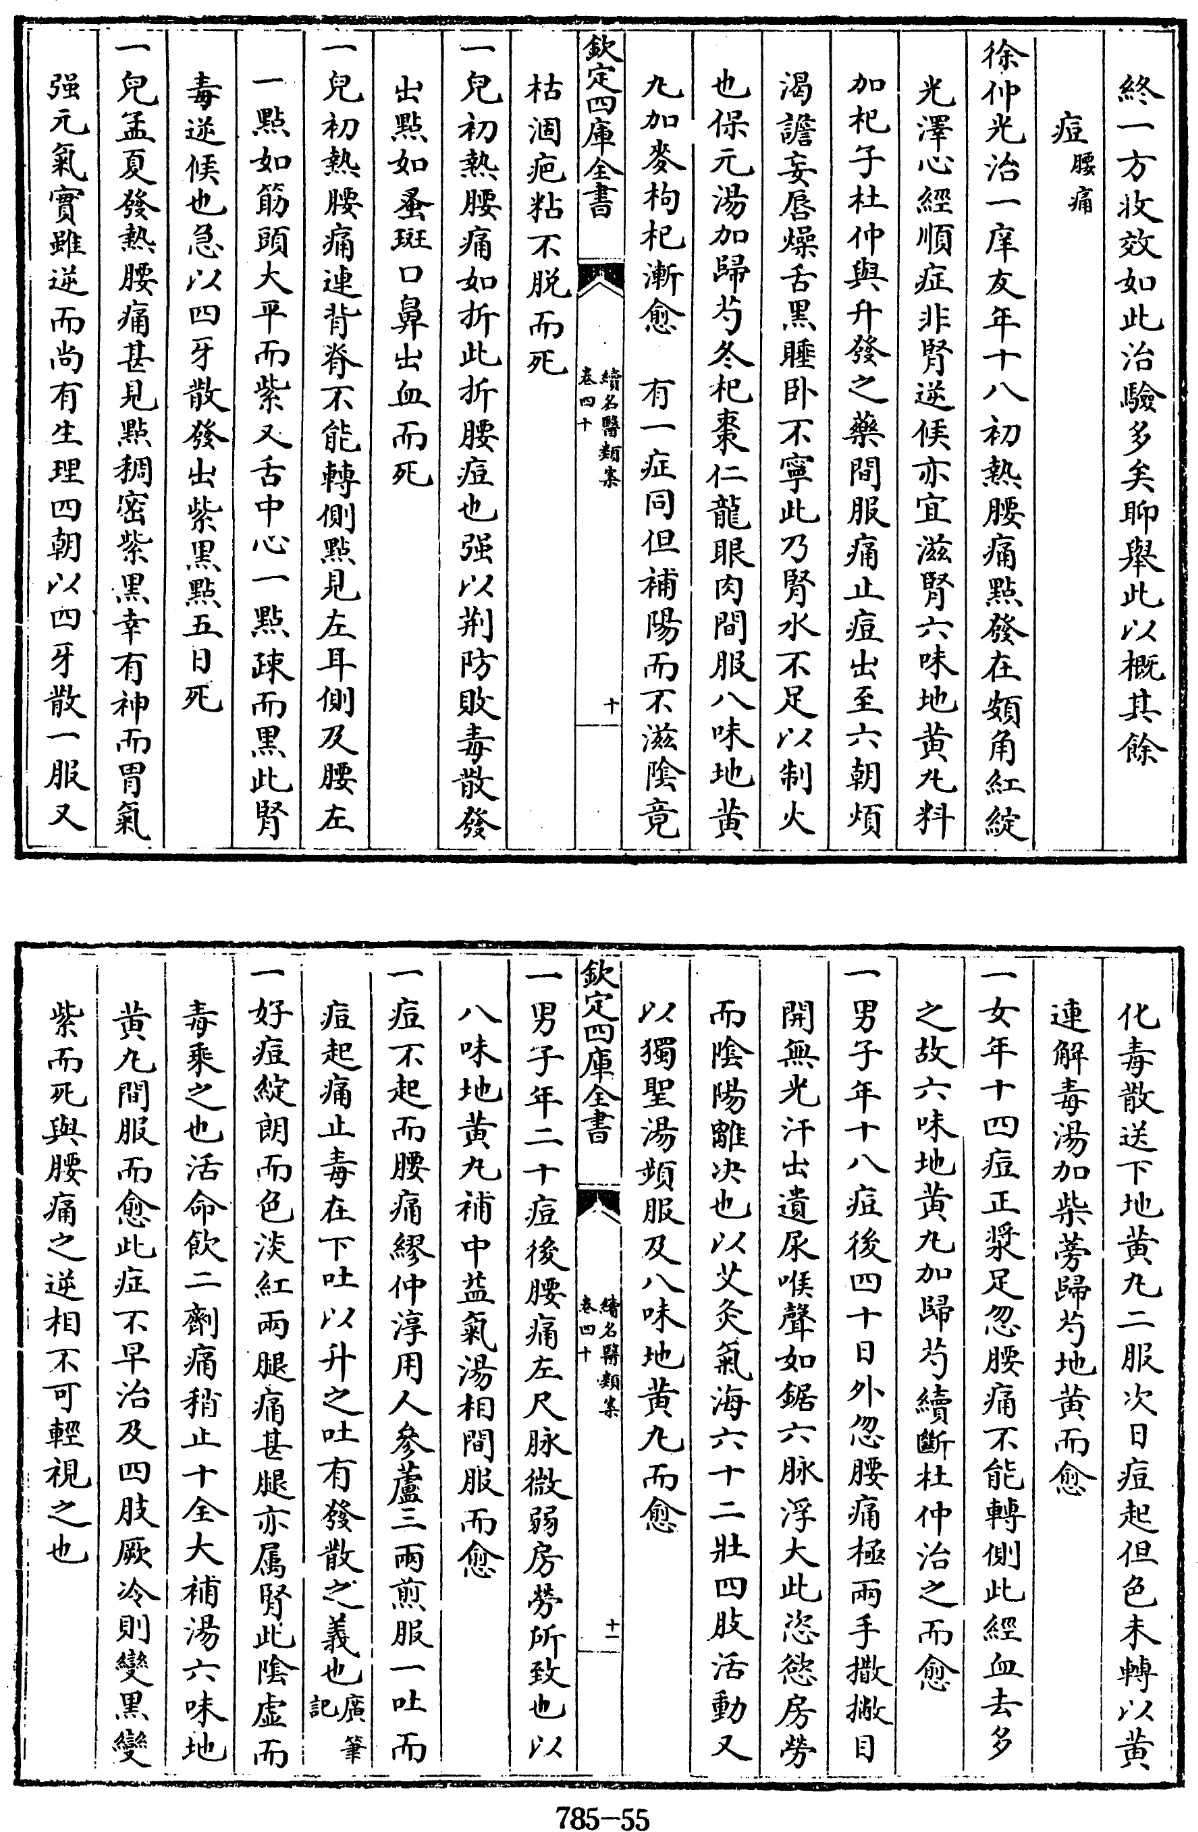 終一方收效如此治驗多矣聊舉此以概其餘
痘腰痛
徐仲光治一庠友年十八初熱腰痛點發在頦角紅綻
光澤心經順症非腎逆候亦宜滋腎六味地黄九料
加杞子杜仲與升發之藥間服痛止痘出至六朝煩
渴譫妄唇燥舌黑睡卧不寧此乃腎水不足以制火
也保元湯加歸芍冬杞棗仁龍眼肉間服八味地黄
九加麥枸杞漸愈 有一症同但補陽而不滋陰竟
欽定四庫全書
續名醫類案
卷四十
十
枯涸疤粘不脱而死
一兒初熱腰痛如折此折腰痘也强以荆防敗毒散發
出點如蚤斑口鼻出血而死
一兒初熱腰痛連背脊不能轉側點見左耳側及腰左
一點如筯頭大平而紫又舌中心一點疎而黑此腎
毒逆候也急以四牙散發出紫黑點五日死
一兒孟夏發熱腰痛甚見點稠密紫黑幸有神而胃氣
强元氣實雖逆而尚有生理四朝以四牙散一服又
化毒散送下地黄九二服次日痘起但色未轉以黄
連解毒湯加柴蒡歸芍地黄而愈
一女年十四痘正漿足忽腰痛不能轉側此經血去多
之故六味地黄九加歸芍續斷杜仲治之而愈
一男子年十八痘後四十日外忽腰痛極兩手撒撇目
開無光汗出遺尿喉聲如鋸六脉浮大此恣慾房勞
而陰陽離决也以艾灸氣海六十二壯四肢活動又
以獨聖湯頻服及八味地黄九而愈
欽定四庫全書
續名醫類案
卷四十
十一
一男子年二十痘後腰痛左尺脉微弱房勞所致也以
八味地黄九補中益氣湯相間服而愈
一痘不起而腰痛繆仲淳用人參蘆三兩煎服一吐而
痘起痛止毒在下吐以升之吐有發散之義也廣筆記
一好痘綻朗而色淡紅兩腿痛甚腿亦属腎此陰虛而
毒乘之也活命飲二劑痛稍止十全大補湯六味地
黄九間服而愈此症不早治及四肢厥冷則變黑變
紫而死與腰痛之逆相不可輕視之也
785-55